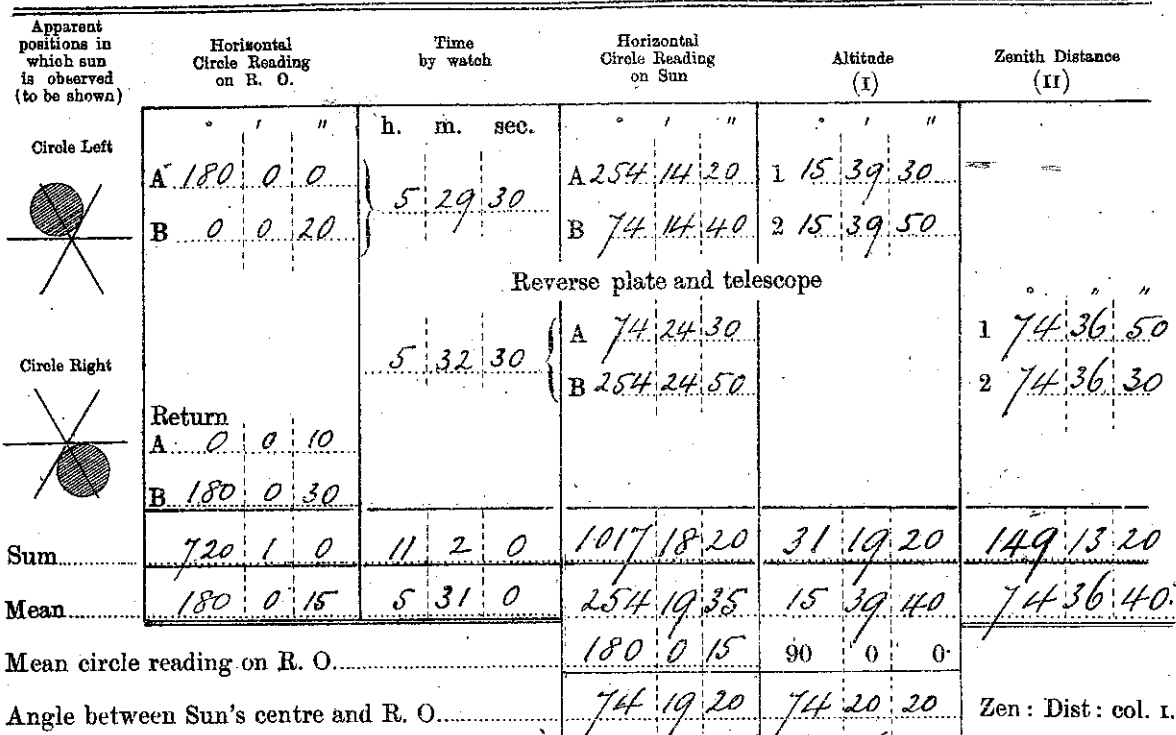 Apparent positions in which sun is observed (to be shown)
Horizontal Circle Reading on R. O.
Time by watch
Horizontal Circle Reading on Sun
Altitude (I)
Zenith Distance (II)
° ' " h. m. sec. ° ' " ° ' "
Circle Left
A 180 0 0
B 0 0 20
5 29 30
A 254 14 20
B 74 14 40
1 15 39 30
2 15 39 50
Reverse plate and telescope
° " "
Circle Right
5 32 30
A 74 24 30
B 254 24 50
1 74 36 50
2 74 36 30
Return
A 0 0 10
B 180 0 30
Sum 720 1 0 11 2 0 1017 18 20 31 19 20 149 13 20
Mean 180 0 15 5 31 0 254 19 35 15 39 40 74 36 40
Mean circle reading on R. O. 180 0 15 90 0 0
Angle between Sun's centre and R. O. 74 19 20 74 20 20 Zen : Dist : col. I.